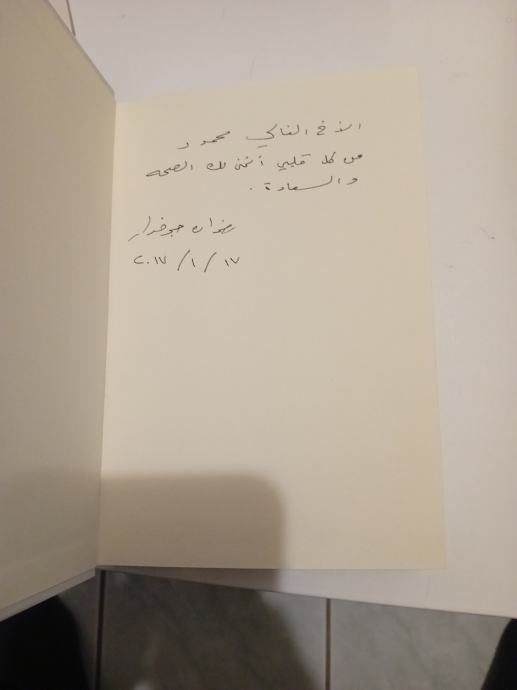 الأخ الغالي محمود
من كل قلبي أتمنى لك الصحه
والسعادة .
رضوان جوخدار
٢٠١٧ / ١ / ١٧